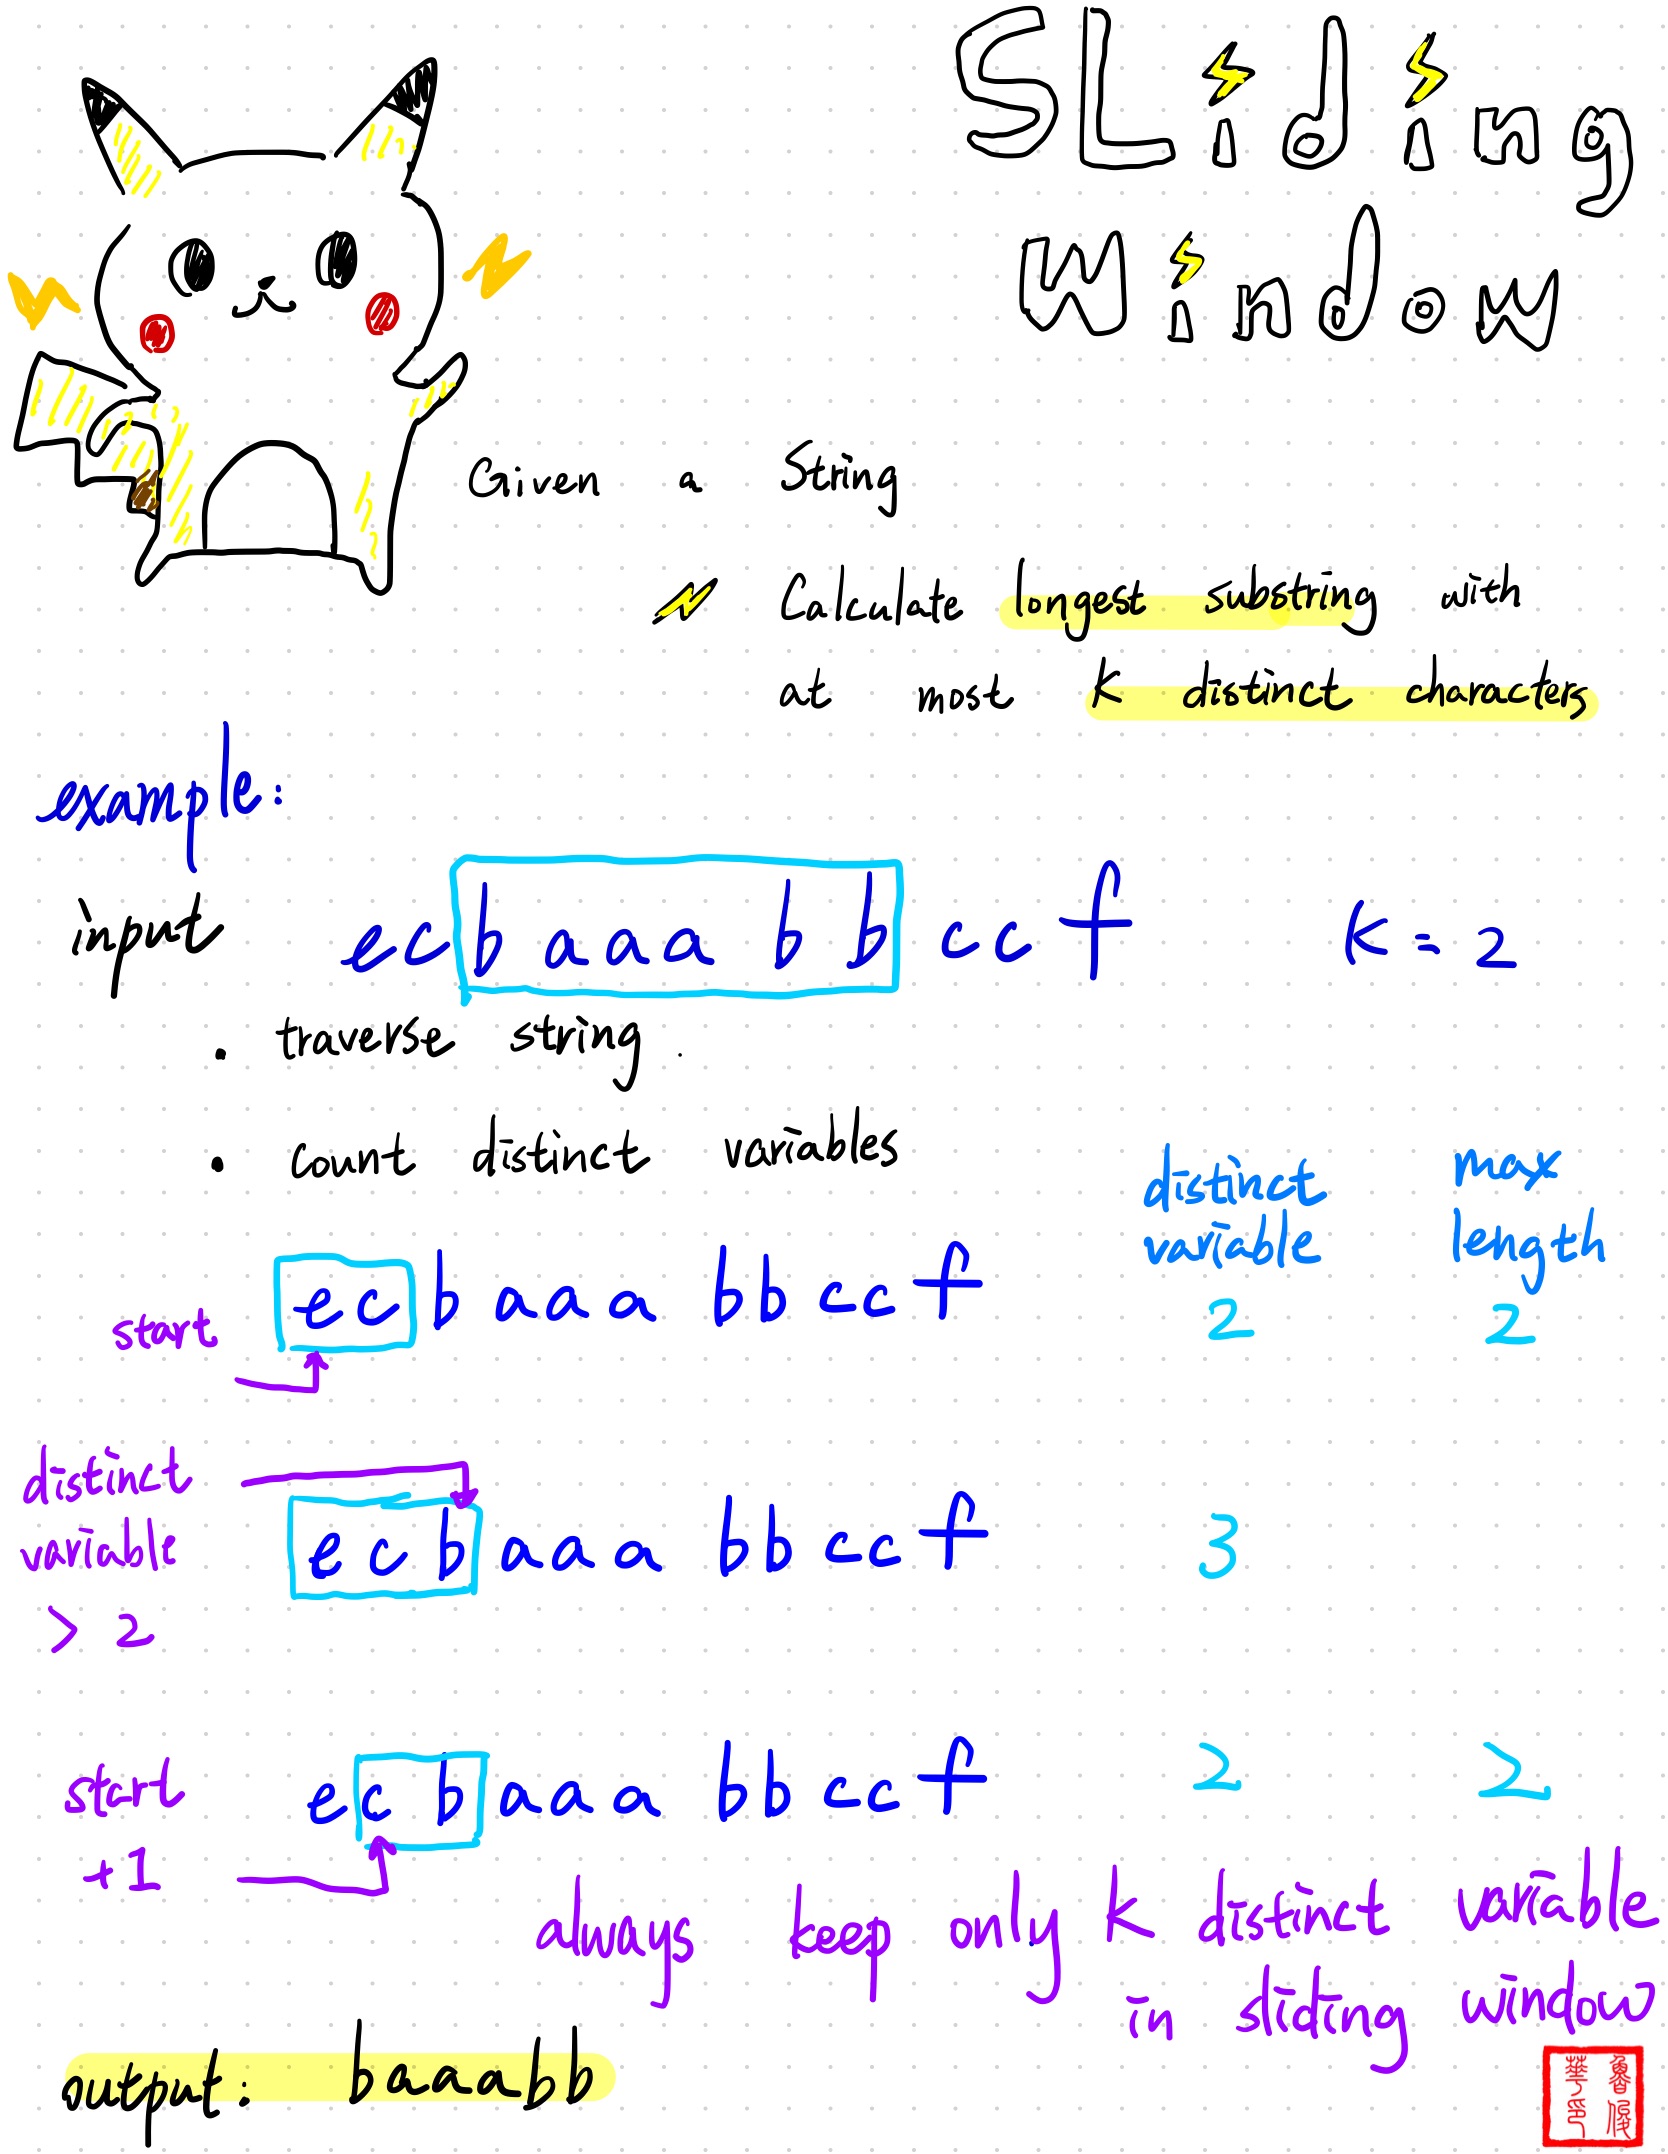 SLiding
Window
Given a String
Calculate longest substring with
at most K distinct characters
example:
input ecbaaabbccf K = 2
. traverse string.
. count distinct variables
distinct variable
max length
start ecbaaabbccf 2 2
distinct variable > 2 ecbaaabbccf 3
start +1 ecbaaabbccf 2 2
always keep only K distinct variable
in sliding window
output: baaabb